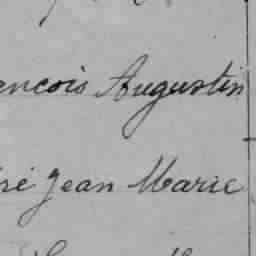 encois Augustin
sé Jean Marie